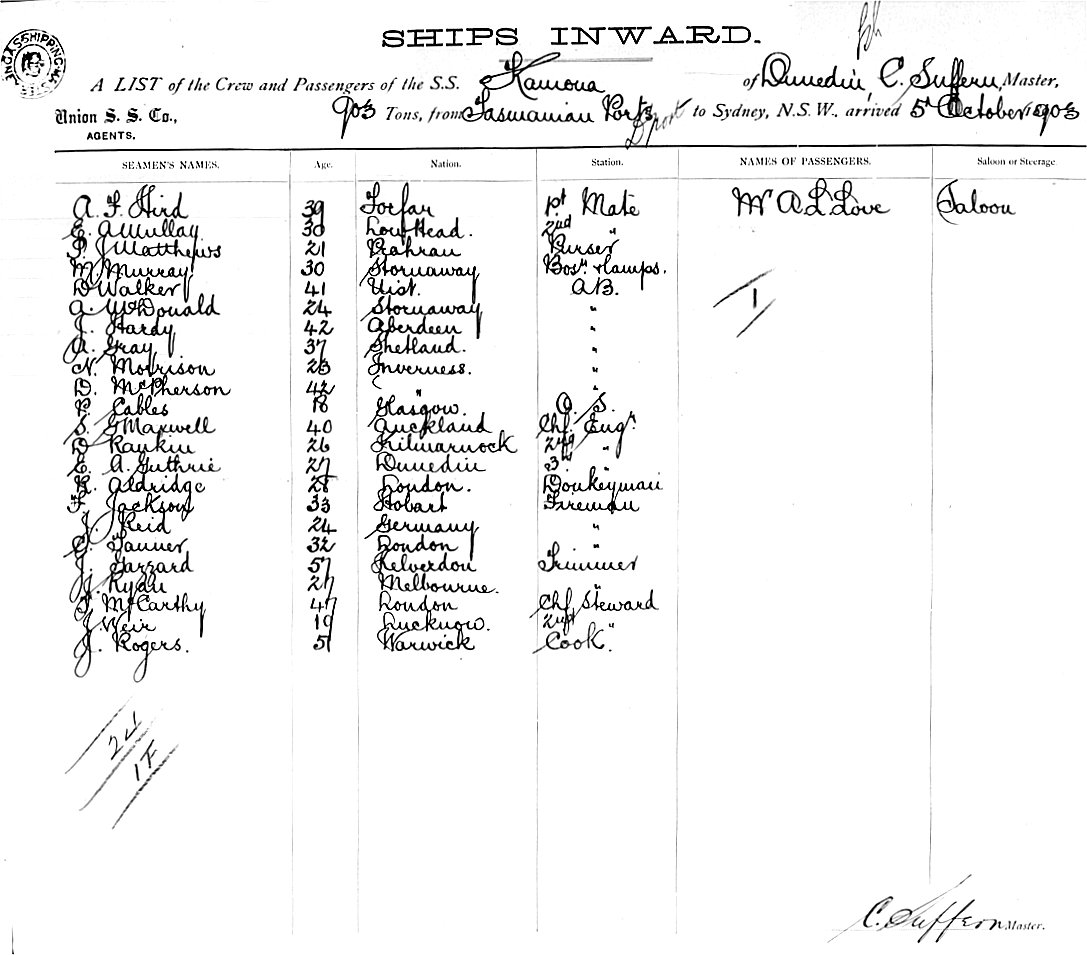 SHIPS INWARD.
A LIST of the Crew and Passengers of the S.S. Kamona of Dunedin, C. Suffern, Master,
Union S. S. Co., 903 Tons, from Tasmanian Ports D'port to Sydney, N.S.W., arrived 5th October 1903
AGENTS.
SEAMEN'S NAMES. Age. Nation. Station. NAMES OF PASSENGERS. Saloon or Steerage.
A. F. Hird 39 Forfar 1st Mate Mr A L Love Saloon
E. A Mullay 30 Head. 2nd "
P. J Matthews 21 Prahran Purser
M Murray 30 Stornaway Bosn & Lamps.
D Walker 41 Uist. A B.
A. McDonald 24 Stornaway "
J. Hardy 42 Aberdeen "
A. Gray 37 Shetland. "
N. Morrison 23 Inverness. "
D. McPherson 42 " "
P. Eables 18 Glasgow. O. S.
S. G Maxwell 40 Auckland Chf Engr
D Rankin 26 Kilmarnock 2nd "
E. A. Guthrie 27 Dunedin 3rd "
R. Aldridge 28 London. Donkeyman
F. Jackson 33 Hobart Fireman
J. Reid 24 Germany "
C. Tanner 32 London "
J. Gazzard 57 Kelverdon Trimmer
J. Ryan 27 Melbourne. "
T. McCarthy 47 London Chf Steward
J. Weir 19 Lucknow. 2nd "
J. Rogers. 51 Warwick Cook.
1
24
1 F
C. Suffern Master.